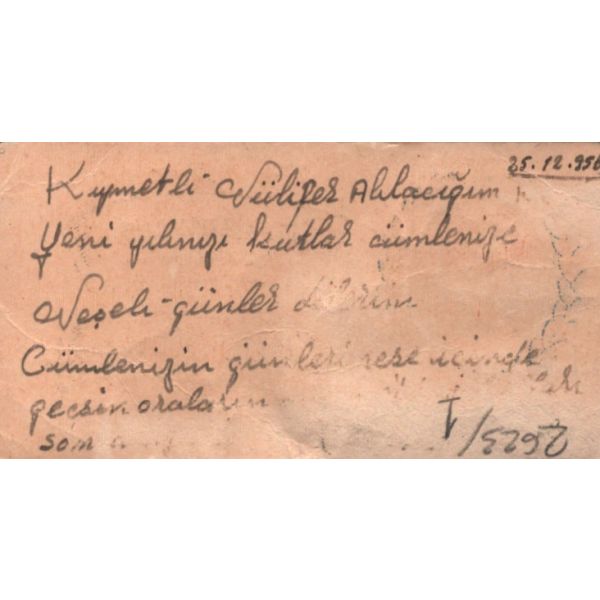 25.12.956
Kıymetli Nülifer Ablacığım
Yeni yılınızı kutlar cümlenize
Neşeli günler dilerim
Cümlenizin günleri neşe içinde
geçsin oraların
son